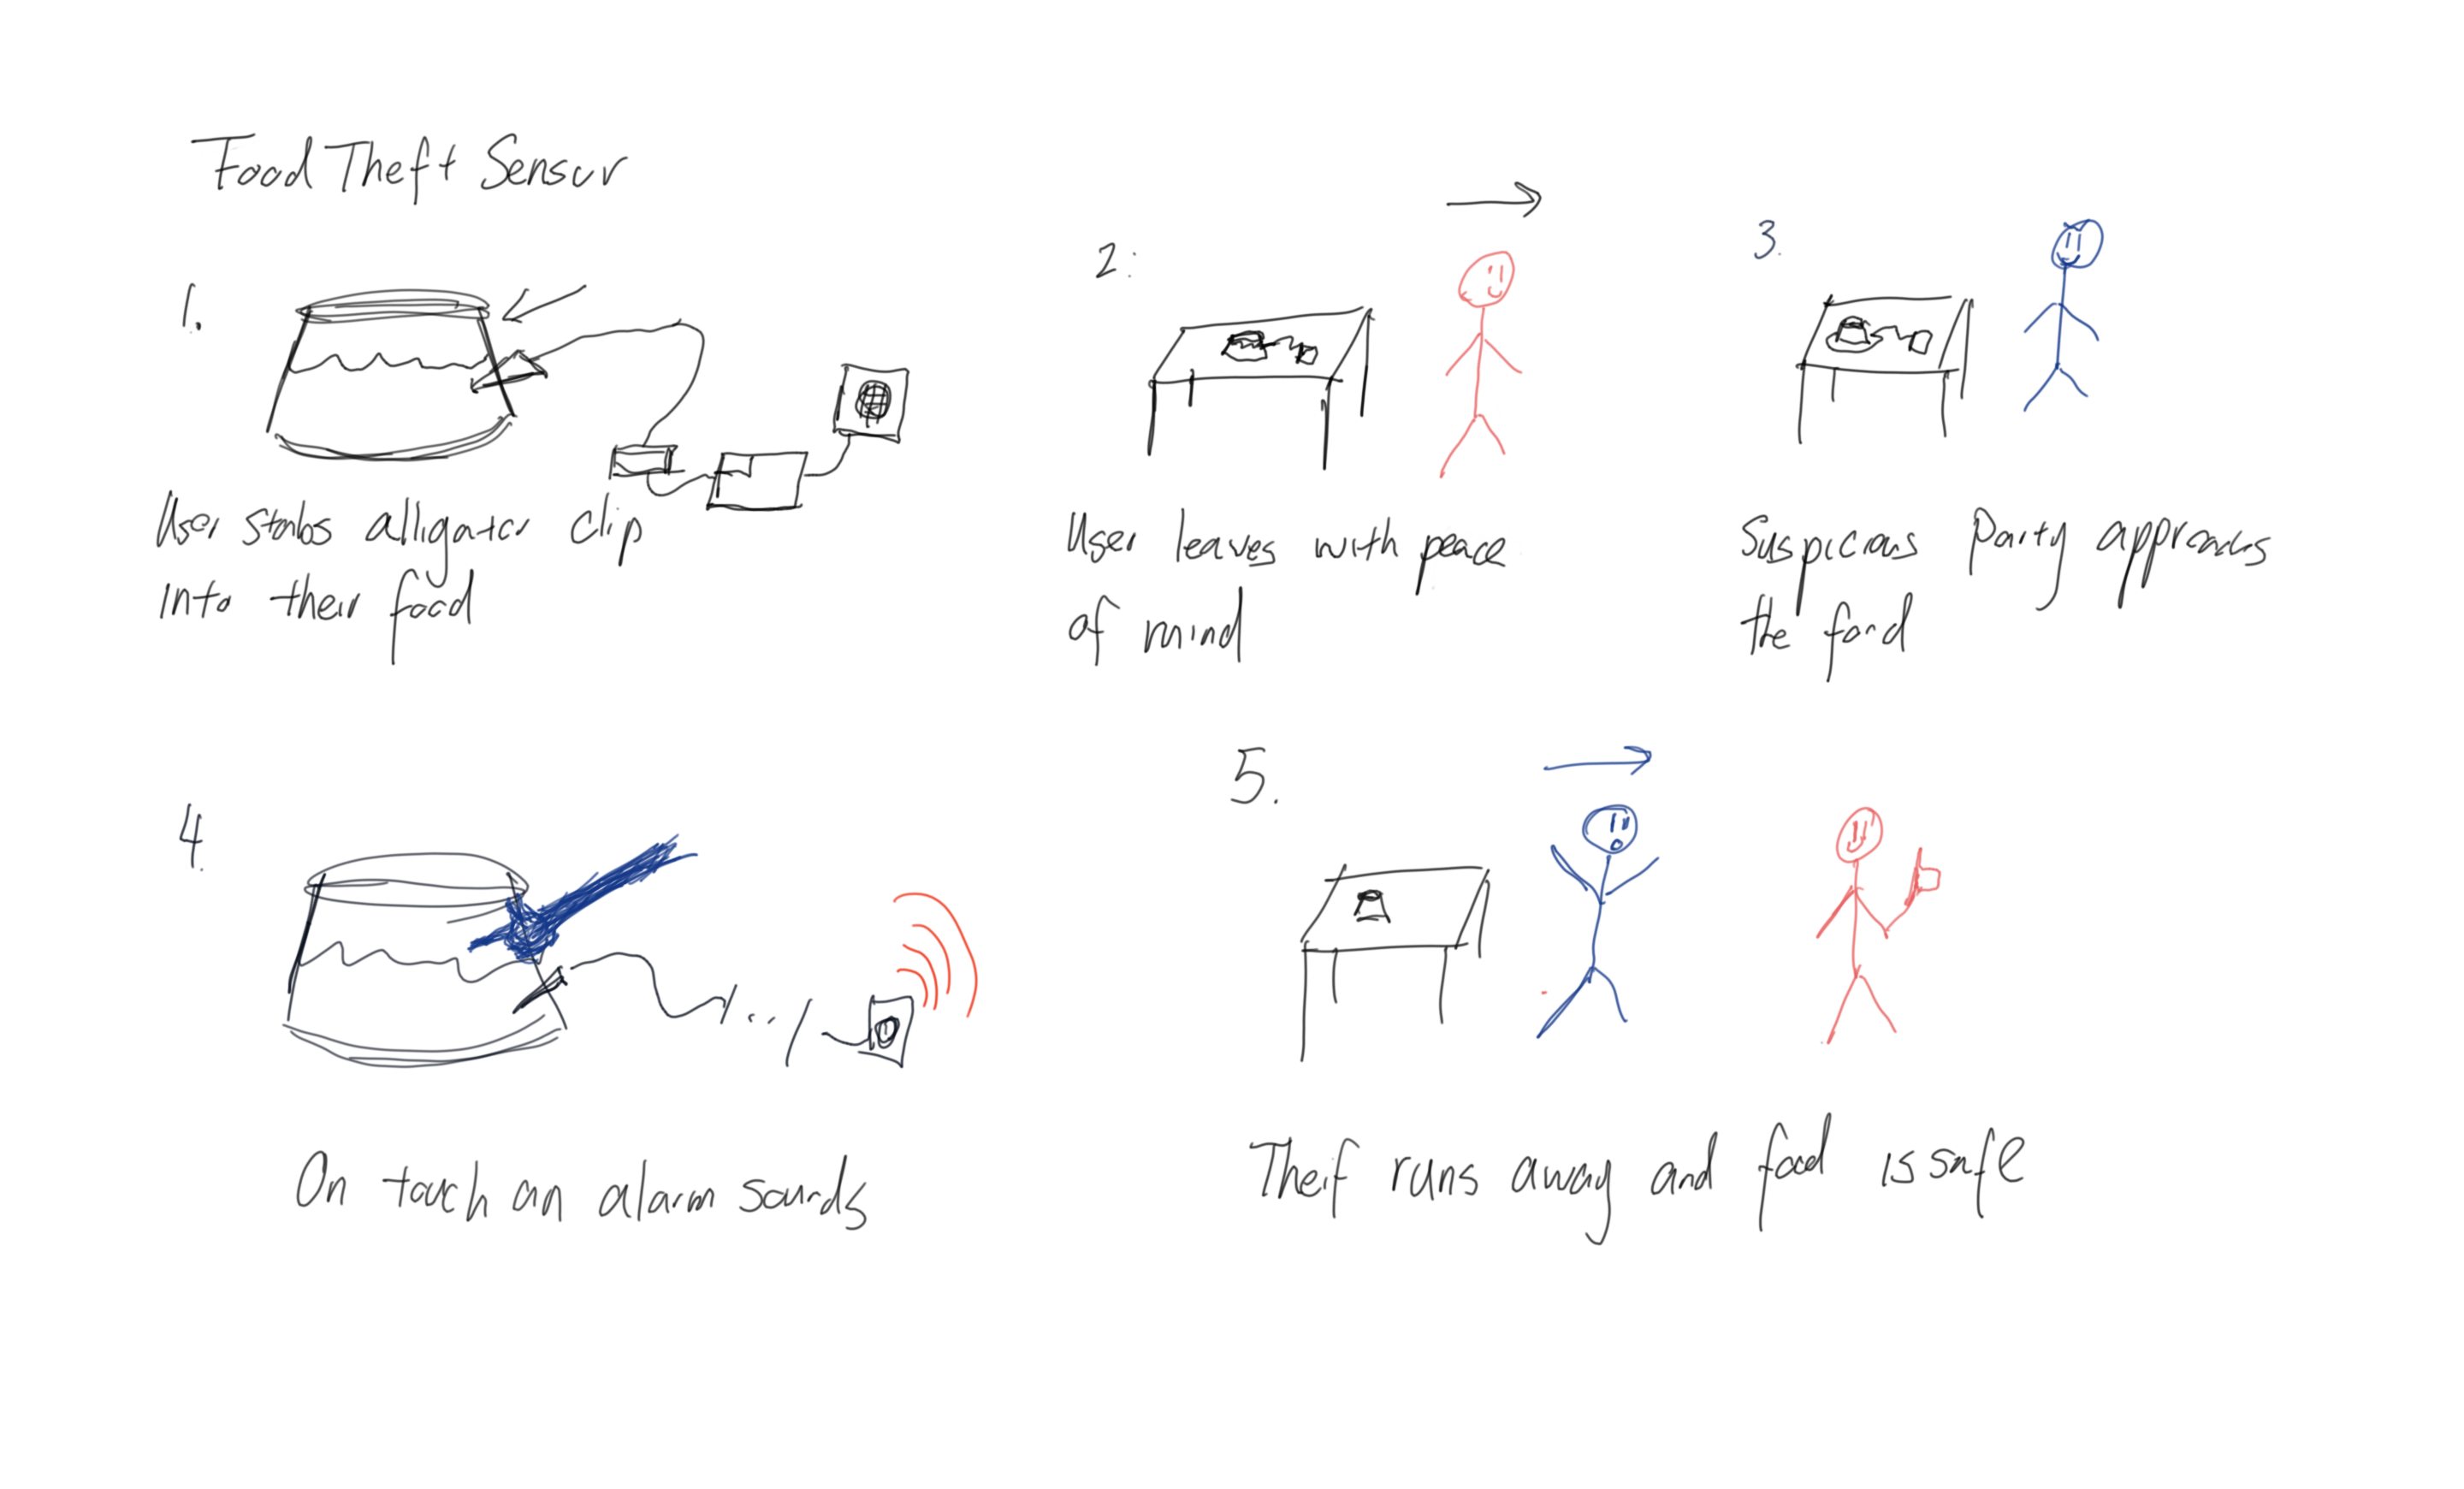 Food Theft Sensor
1.
User stabs alligator clip
into their food
2.
User leaves with peace
of mind
3.
Suspicious Party approachs
the food
4.
On touch an alarm sounds
5.
Theif runs away and food is safe